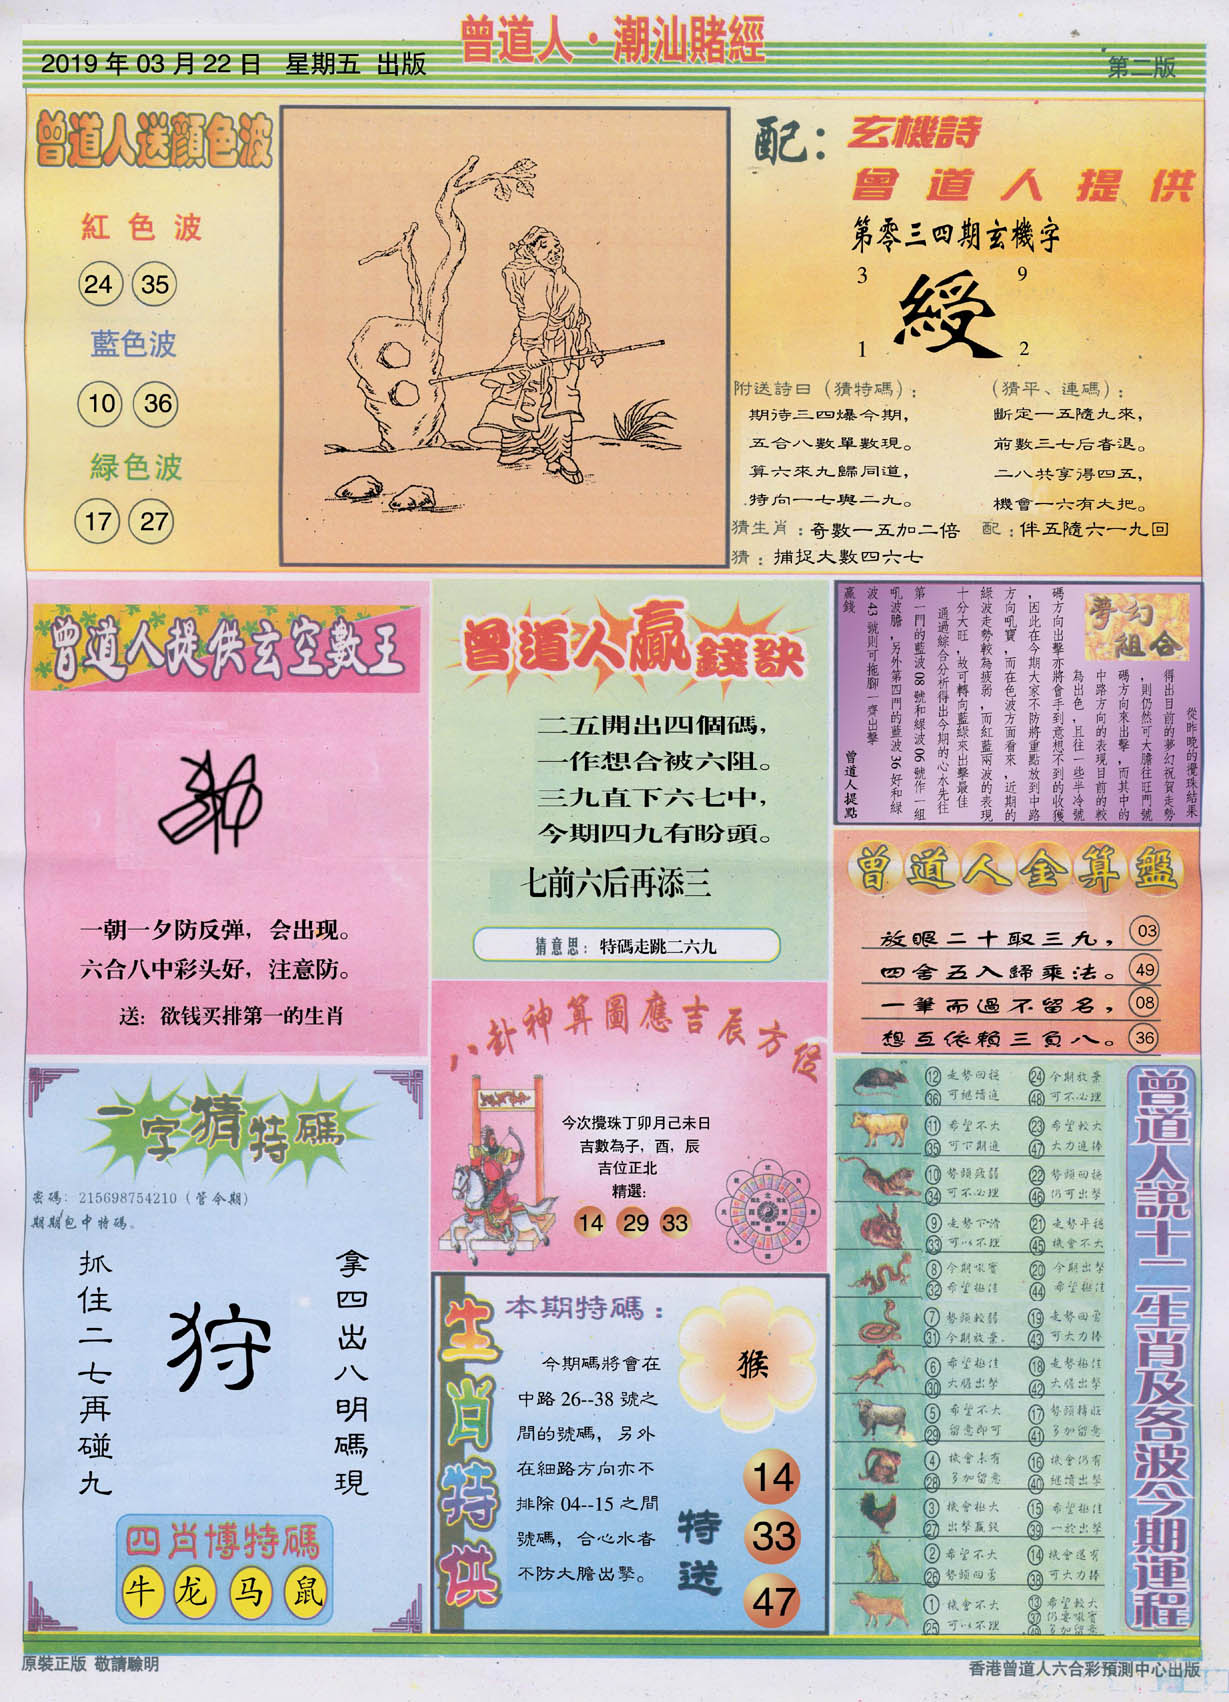 曾道人·潮汕賭經
2019年03月22日 星期五 出版
第二版
曾道人送顏色波
紅色波
24 35
藍色波
10 36
緑色波
17 27
配：玄機詩
曾道人提供
第零三四期玄機字
3 9
綬
1 2
附送詩曰（猜特碼）：
期待三四爆今期，
五合八數單數現。
算六來九歸同道，
特向一七與二九。
（猜平、連碼）：
斷定一五隨九來，
前數三七后者退。
二八共享得四五，
機會一六有大把。
猜生肖：奇數一五加二倍
配：伴五隨六一九回
猜：捕捉大數四六七
曾道人提供玄空數王
一朝一夕防反弹，会出现。
六合八中彩头好，注意防。
送：欲钱买排第一的生肖
曾道人贏錢訣
二五開出四個碼，
一作想合被六阻。
三九直下六七中，
今期四九有盼頭。
七前六后再添三
猜意思：特碼走跳二六九
夢幻組合
從昨晚的攪珠結果
得出目前的夢幻祝賀走勢
，則仍然可大膽往旺門號
碼方向來出擊，而其中的
中路方向的表現目前的較
為出色，且往一些半冷號
碼方向出擊亦將會手到意想不到的收獲
，因此在今期大家不防將重點放到中路
方向吼寶，而在色波方面看來，近期的
綠波走勢較為疲弱，而紅藍兩波的表現
十分大旺，故可轉向藍綠來出擊最佳
通過綜合分析得出今期的心水先往
第一門的藍波08號和綠波06號作一組
吼波膽，另外第四門的藍波36好和綠
波43號則可拖腳一齊出擊
贏錢
曾道人提點
曾道人金算盤
放眼二十取三九， 03
四舍五入歸乘法。 49
一筆而過不留名， 08
想互依賴三負八。 36
八卦神算圖應吉辰方位
今次攪珠丁卯月己未日
吉數為子，酉，辰
吉位正北
精選：
14 29 33
一字猜特碼
密碼：215698754210（管令期）
期期包中特碼。
拿四出八明碼現
狩
抓住二七再碰九
四肖博特碼
牛 龙 马 鼠
生肖特供
本期特碼：
今期碼將會在
中路26--38號之
間的號碼，另外
在細路方向亦不
排除04--15之間
號碼，合心水者
不防大膽出擊。
猴
特送
14
33
47
曾道人説十二生肖及各波今期運程
12 走勢回穩 24 今期放棄
36 可繼續進 48 可不必理
11 希望不大 23 希望較大
35 可下期進 47 大力進捧
10 勢頭疲弱 22 勢頭回穩
34 可不必理 46 仍可出擊
9 走勢下滑 21 走勢平穩
33 可以不理 45 機會不大
8 今期吼寶 20 今期出擊
32 希望極佳 44 希望極佳
7 勢頭較弱 19 走勢回勇
31 今期放棄 43 可大力捧
6 希望極佳 18 走勢極佳
30 大膽出擊 42 大膽出擊
5 希望不大 17 勢頭轉旺
29 留意即可 41 多加留意
4 機會未有 16 機會仍有
28 多加留意 40 繼續出擊
3 機會極大 15 希望極佳
27 出擊贏錢 39 一於出擊
2 希望不大 14 機會還有
26 勢頭回勇 38 可大力捧
1 機會不大 13 希望較大
25 可以不理 37 仍要吼寶
49 多加留意
原裝正版 敬請驗明
香港曾道人六合彩預測中心出版